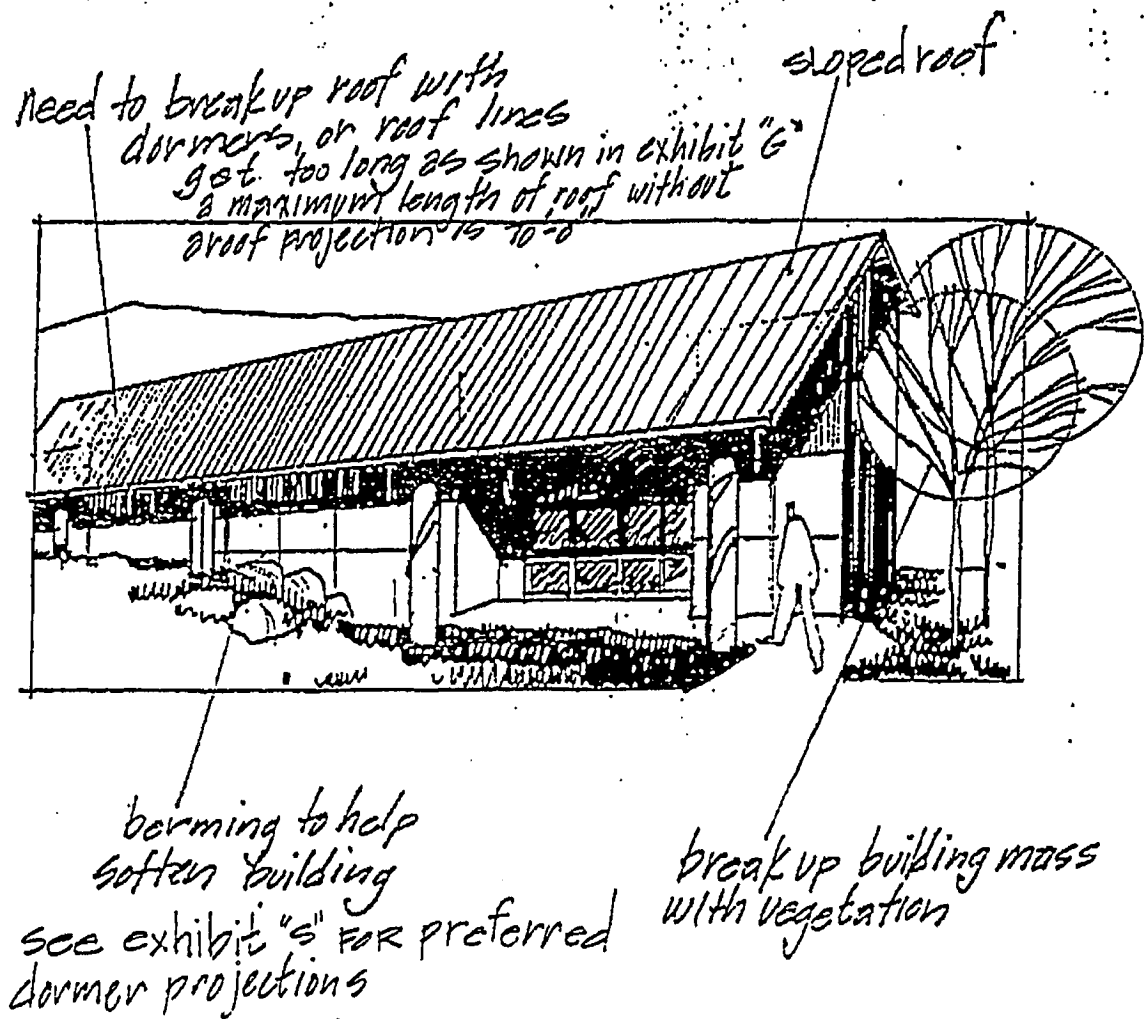 need to break up roof with
dormers, or roof lines
get too long as shown in exhibit "G"
a maximum length of roof without
a roof projection is
sloped roof
berming to help
soften building
see exhibit "S" FOR preferred
dormer projections
break up building mass
with vegetation